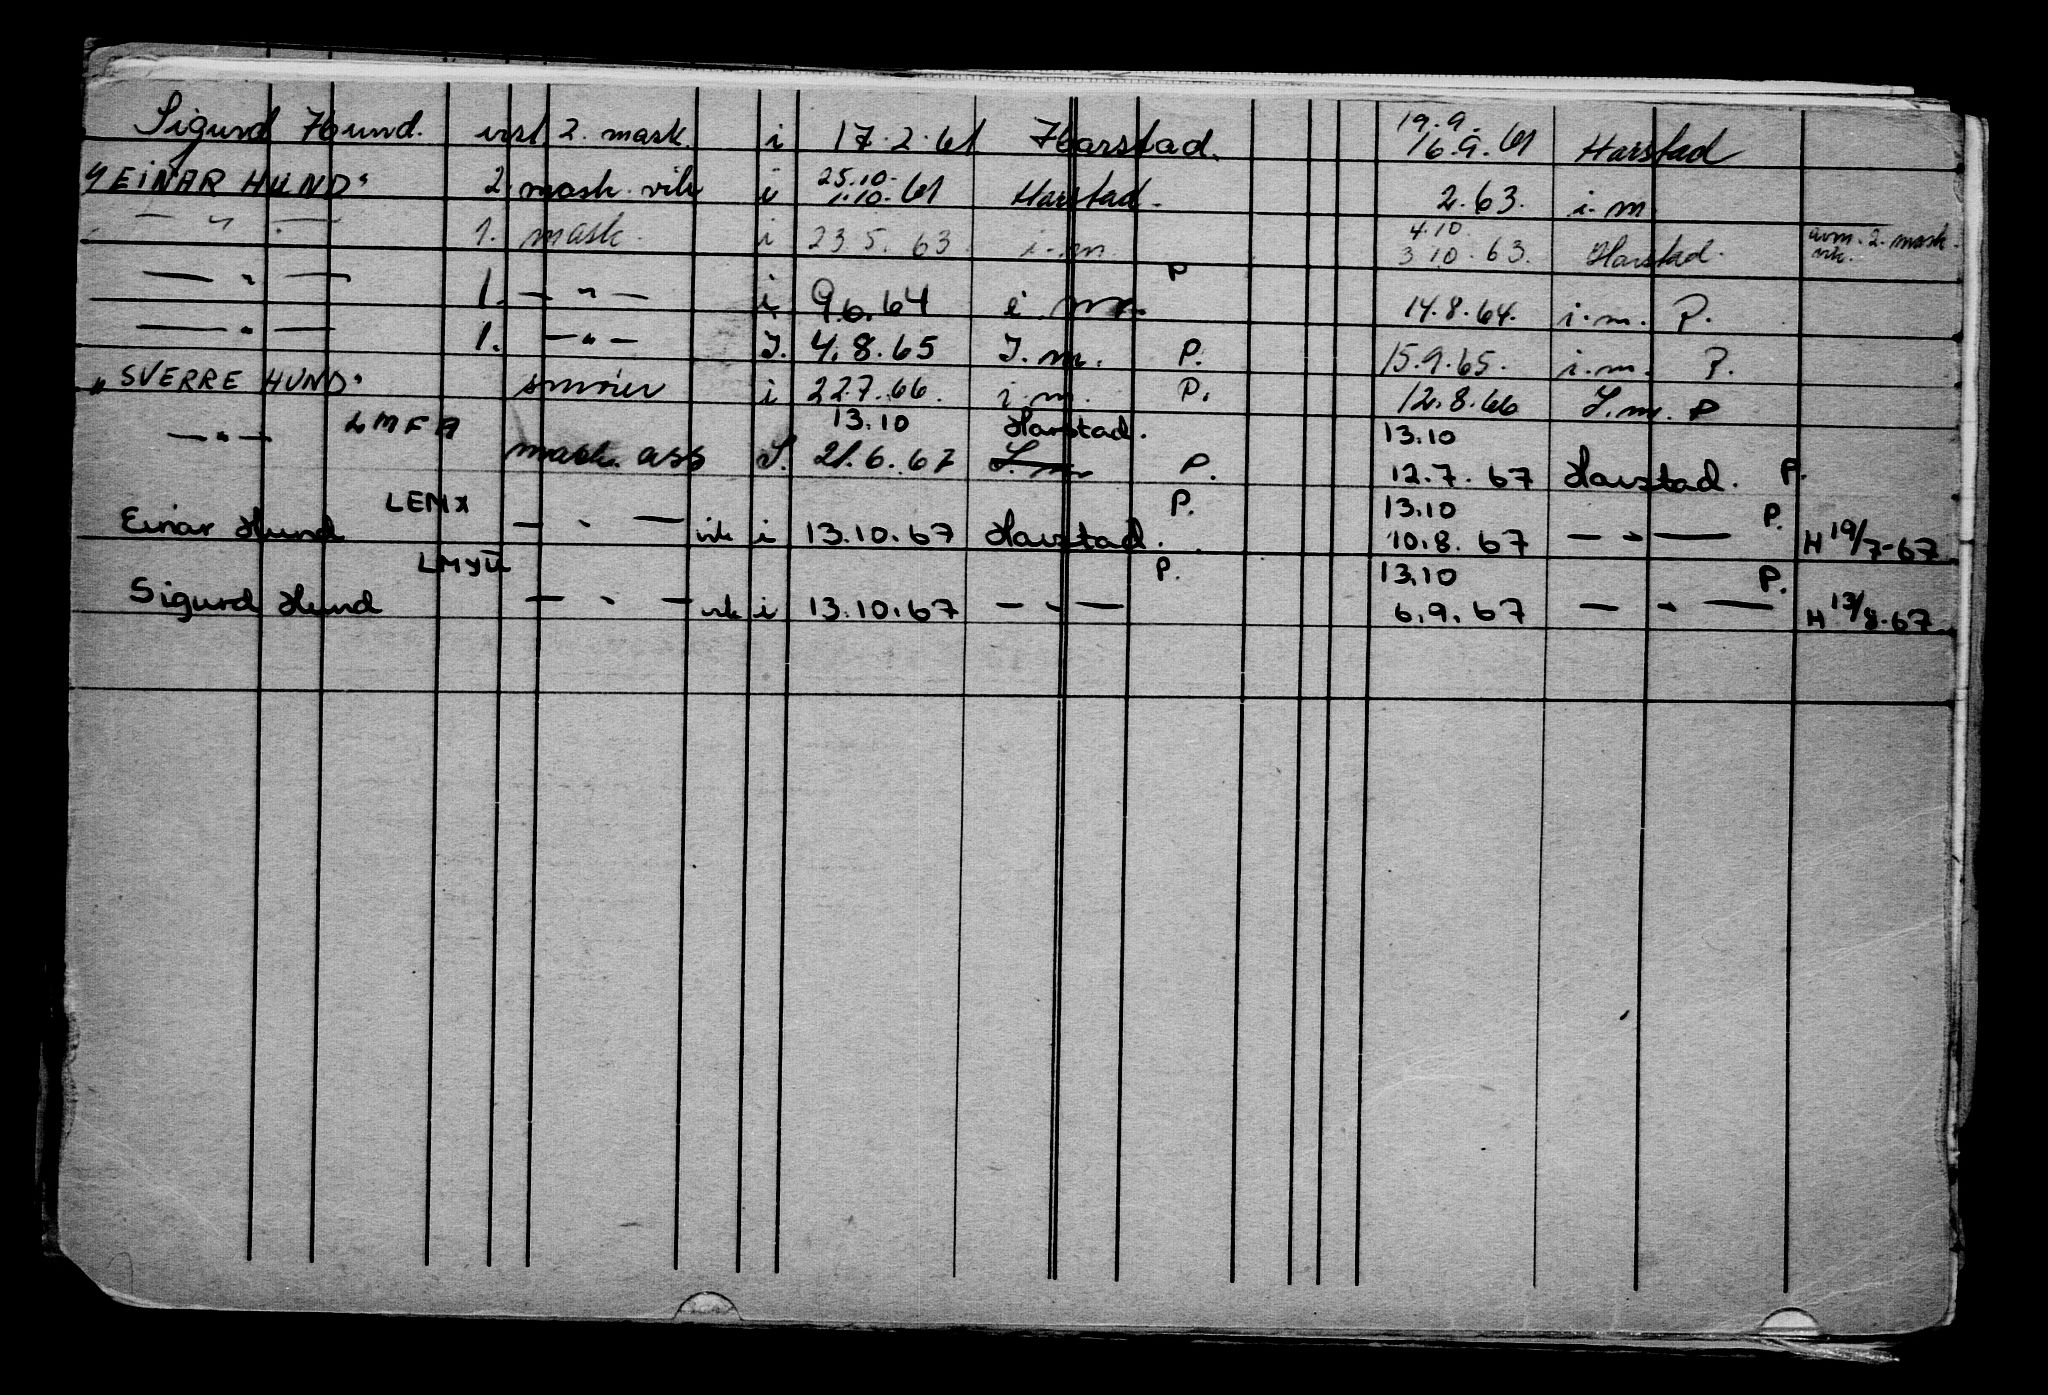 Sigurd Hund. 2. mask. i 17.2.61 Harstad. 19.9. 16.9.61 Harstad
"EINAR HUND" 2. mask. vik i 25.10. 1.10.61 Harstad. 2.63. i.m
— " — 1. mask. i 23.5.63 i.m. 4.10 3.10.63. Harstad. avm. 2. mask. vik.
— " — 1. — " — i 9.6.64 i.m. P 14.8.64. i.m. P.
— " — 1. — " — I. 4.8.65 I.m. P. 15.9.65. i.m. P.
"SVERRE HUND" smører i 22.7.66. i.m. P. 12.8.66 I.m. P
LMFA 13.10 Harstad. 13.10
— " — mask. ass I. 21.6.67 I.m. P. 12.7.67 Harstad. P.
LEMX P. 13.10 P.
Einar Hund — " — vik i 13.10.67 Harstad. 10.8.67 — " — H 19/7-67
P. 13.10 P.
Sigurd Hund — " — vik i 13.10.67 — " — 6.9.67 — " — H 13/8-67